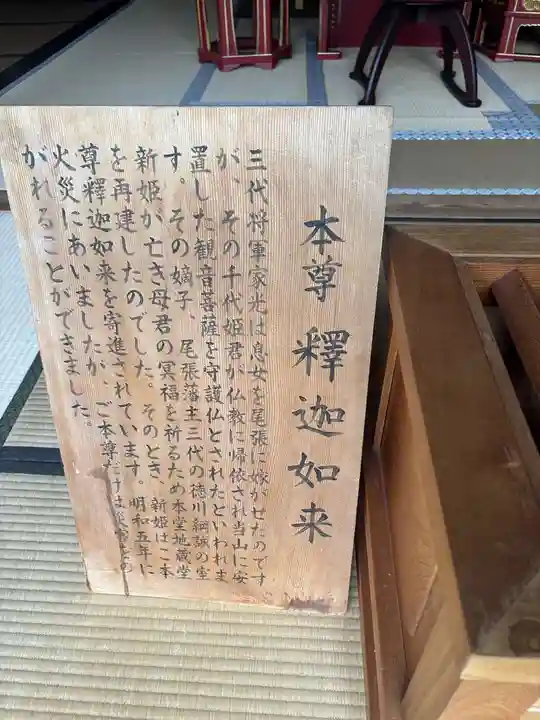 本尊 釋迦如来
三代将軍家光は息女を尾張に嫁がせたのです
が、その千代姫君が仏教に帰依され当山に安
置した観音菩薩を守護仏とされたといわれま
す。その嫡子、尾張藩主三代の徳川綱誠の室
新姫が亡き母君の冥福を祈るため本堂地蔵堂
を再建したのでした。そのとき、新姫はご本
尊釋迦如来を寄進されています。明和五年に
火災にあいましたが、ご本尊だけは災害をの
がれることができました。